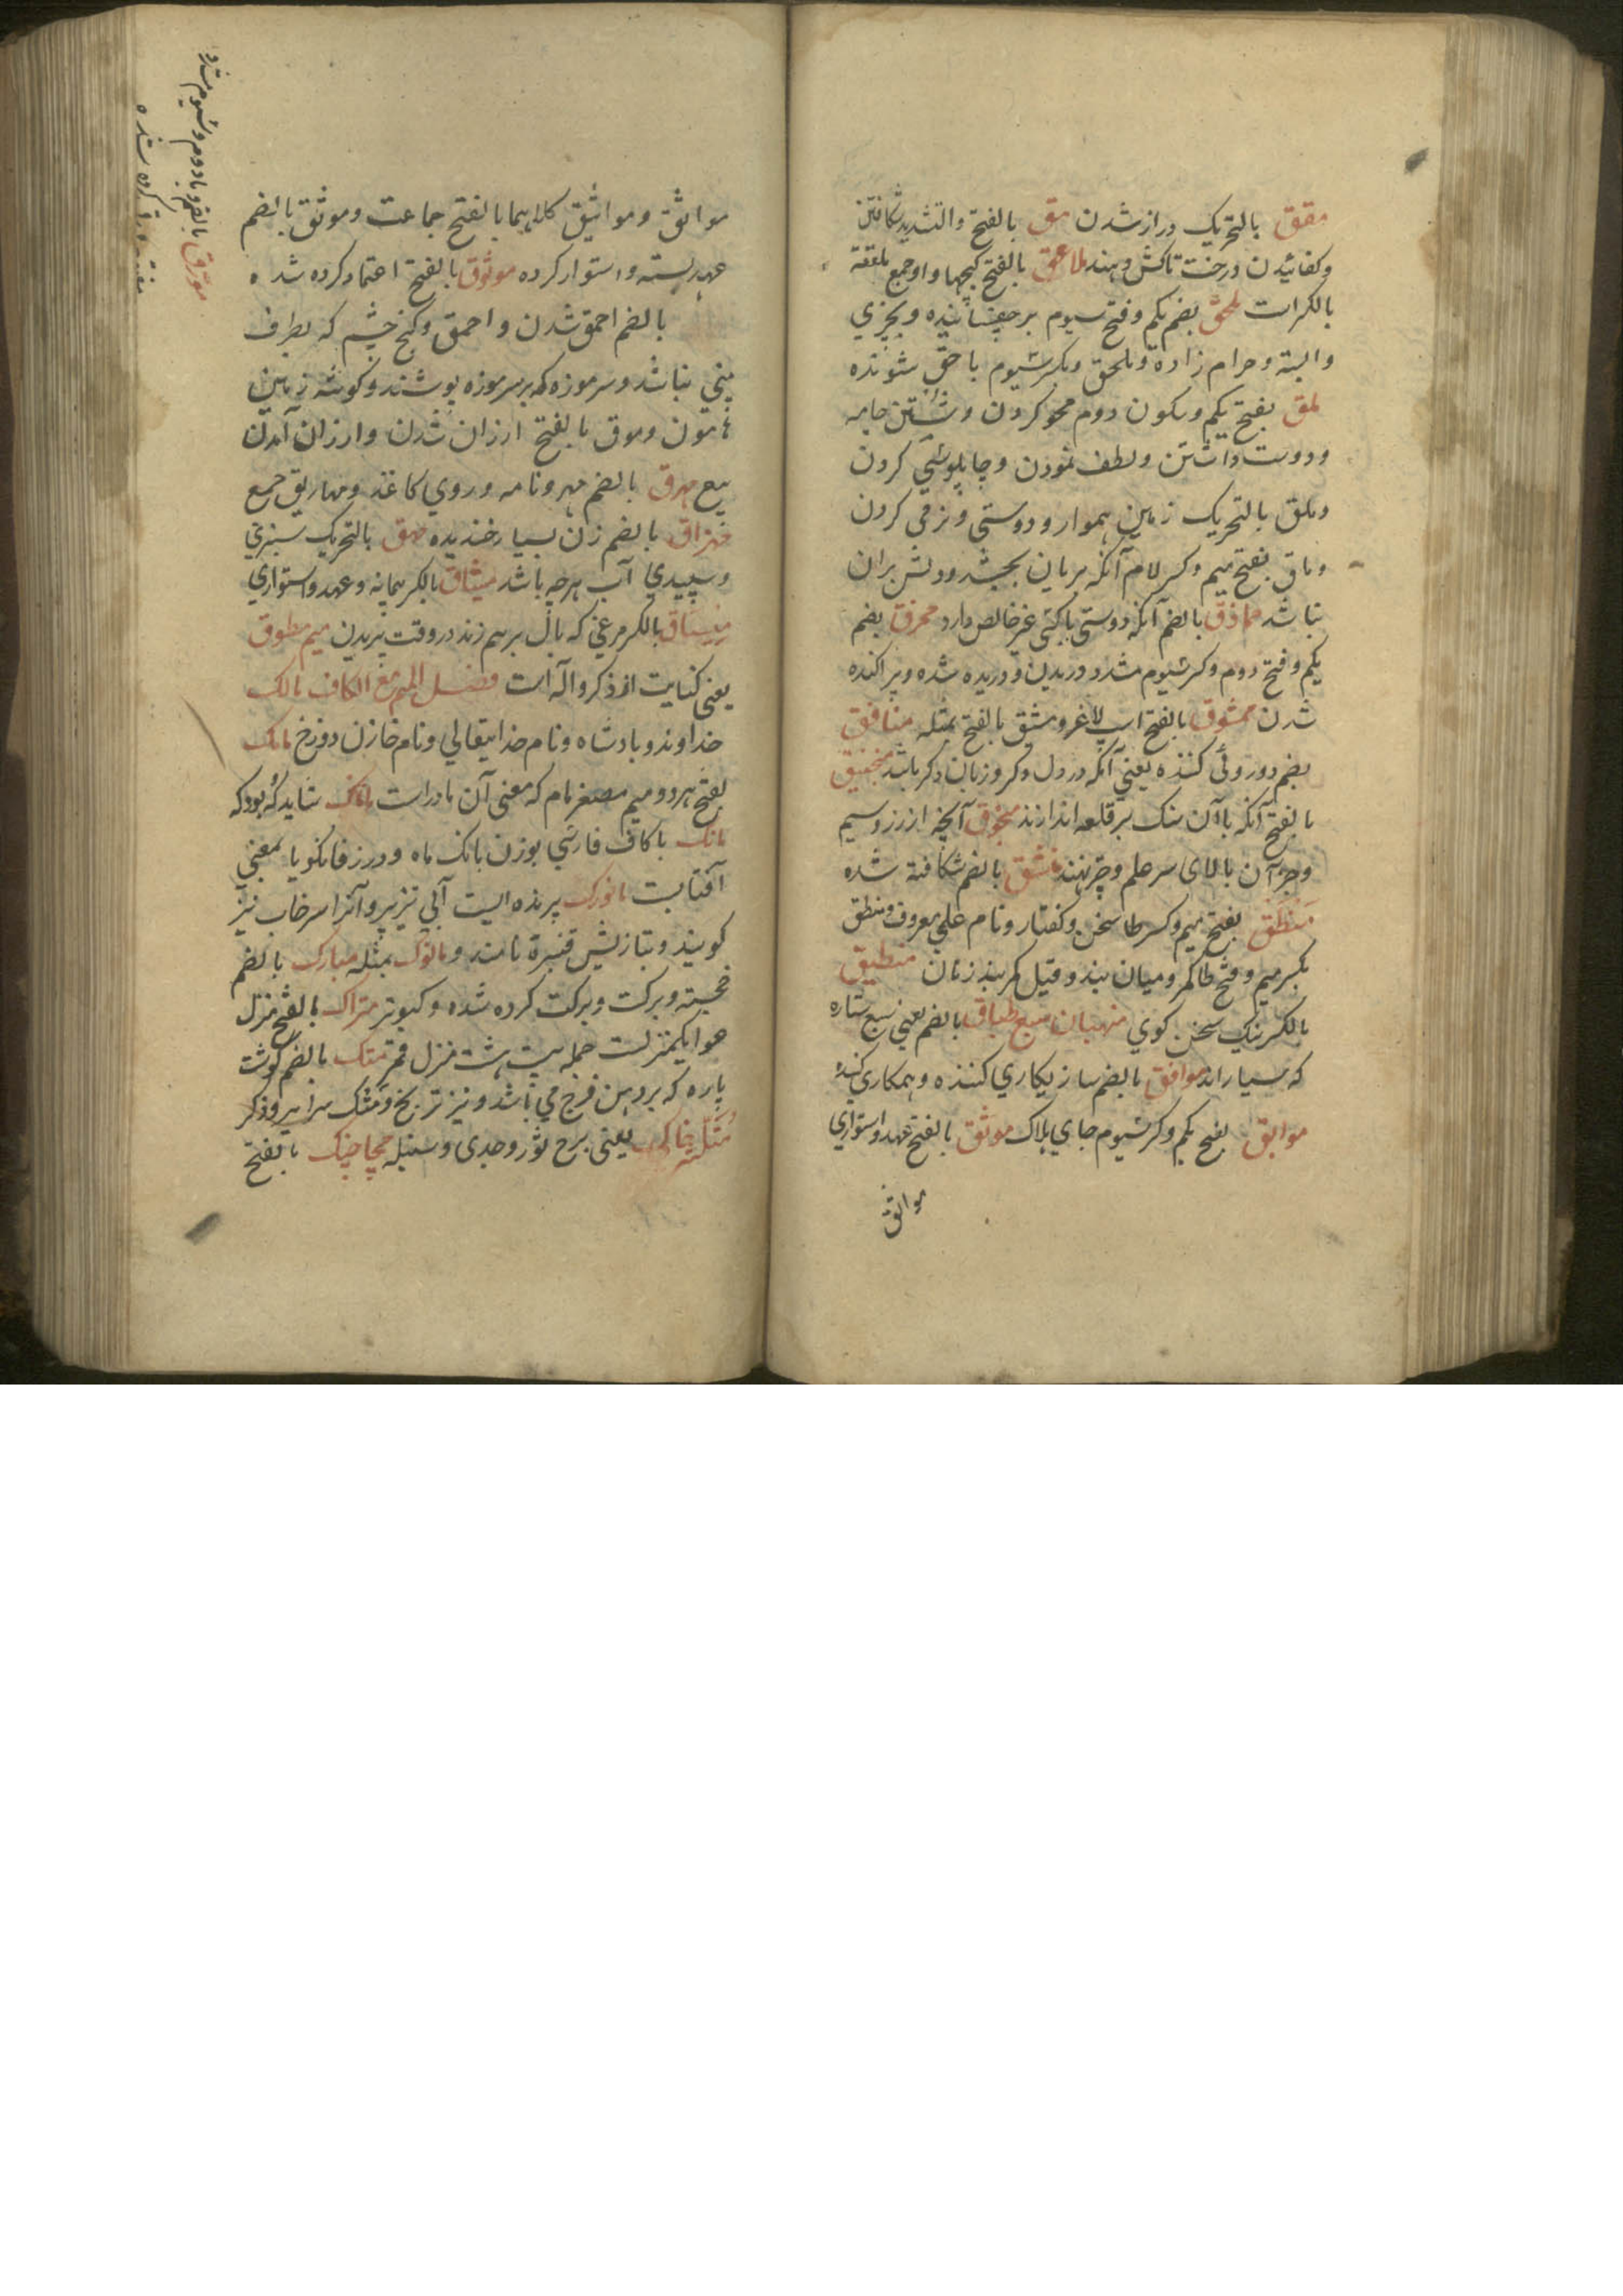 مقق بالتحریک دراز شدن مق بالفتح والتشدید شکافتن
وکفانیدن درخت تا کش دهند ملاعق بالفتح کپچها و او جمع ملعقه
بالکسر است ملحق بضم یکم وفتح سیوم برچفسانیده وبچیزی
وابسته وحرام زاده وملحق وبکسر سیوم باحق شونده
ملق بفتح یکم وسکون دوم محو کردن وشستن جامه
ودوست داشتن ولطف نمودن وچاپلوسی کردن
وملق بالتحریک زمین هموار ودوستی ونرمی کردن
وملق بفتح میم وکسر لام آنکه بزبان بخشد ودلش بران
نباشد مماذق بالضم آنکه دوستی باکسی غیر خالص دارد ممزق بضم
یکم وفتح دوم وکسر سیوم مشدد دریدن ودریده شده وپراکنده
شدن ممشوق بالفتح اسپ لاغر ومشق بالفتح بمثله منافق
بضم دوروئی کننده یعنی آنکه در دل دکر وزبان دکر باشد منجنیق
بالفتح آنکه باآن سنک بر قلعه اندازند منجوق آنچه از زر وسیم
وجز آن بالای سر علم وچتر نهند منشق بالضم شکافته شده
منطق بفتح میم وکسر طا سخن وکفتار ونام علمی معروف ومنطق
بکسر میم وفتح طا کمر ومیان بند وقیل کمربند زنان منطیق
بالکسر نیک سخن کوی منهیان سبع طباق بالضم یعنی سبع ستاره
که سیاراند موافق بالضم سازیکاری کننده وهمکاری کننده
موابق بفتح یکم وکسر سیوم جای هلاک موثق بالفتح عهد واستواری
مواثق
مواثق ومواثیق کلاهما بالفتح جماعت وموثق بالضم
عهد بسته واستوار کرده موثوق بالفتح اعتماد کرده شده
بالضم احمق شدن واحمق وکنج چشم که بطرف
بینی نباشد وسرموزه که بر سر موزه پوشند وکوشه زمین
هامون وموق بالفتح ارزان شدن وارزان آمدن
بیع مهرق بالضم مهر ونامه وروی کاغذ ومهاریق جمع
مهزاق بالضم زن بسیار خندیده مهق بالتحریک سبزی
وسپیدی آب هرچه باشد میثاق بالکسر پیمانه وعهد واستواری
میساق بالکسر مرغی که بال برهم زند در وقت پریدن میم مطوق
یعنی کنایت از ذکر وآله است فصل المیم مع الکاف مالک
خداوند وبادشاه ونام خدایتعالی ونام خازن دوزخ مامک
بفتح هر دو میم مصغر مام که معنی آن مادر است مانک شاید که بود که
مانک باکاف فارسی بوزن بانک ماه ودر زفانکویا بمعنی
آفتابست مانورک پرنده ایست آبی تیزپر وآنرا سرخاب نیز
کویند وبتازیش قنبرة نامند ومانوک بمثله مبارک بالضم
خجسته وبرکت وبرکت کرده شده وکبوتر متراک بالفتح منزل
هوا یکمنزلست جمله بیست هشت منزل قمر متک بالضم کوشت
پاره که بر دهن فرج می باشد ونیز ترنج ومتک سرا یر وذکر
مثلثه خاکی یعنی برج ثور وجدی وسنبله مجاجنک بالفتح
مورق بالضم وبا دوم وسیوم مشدد
کرده شده